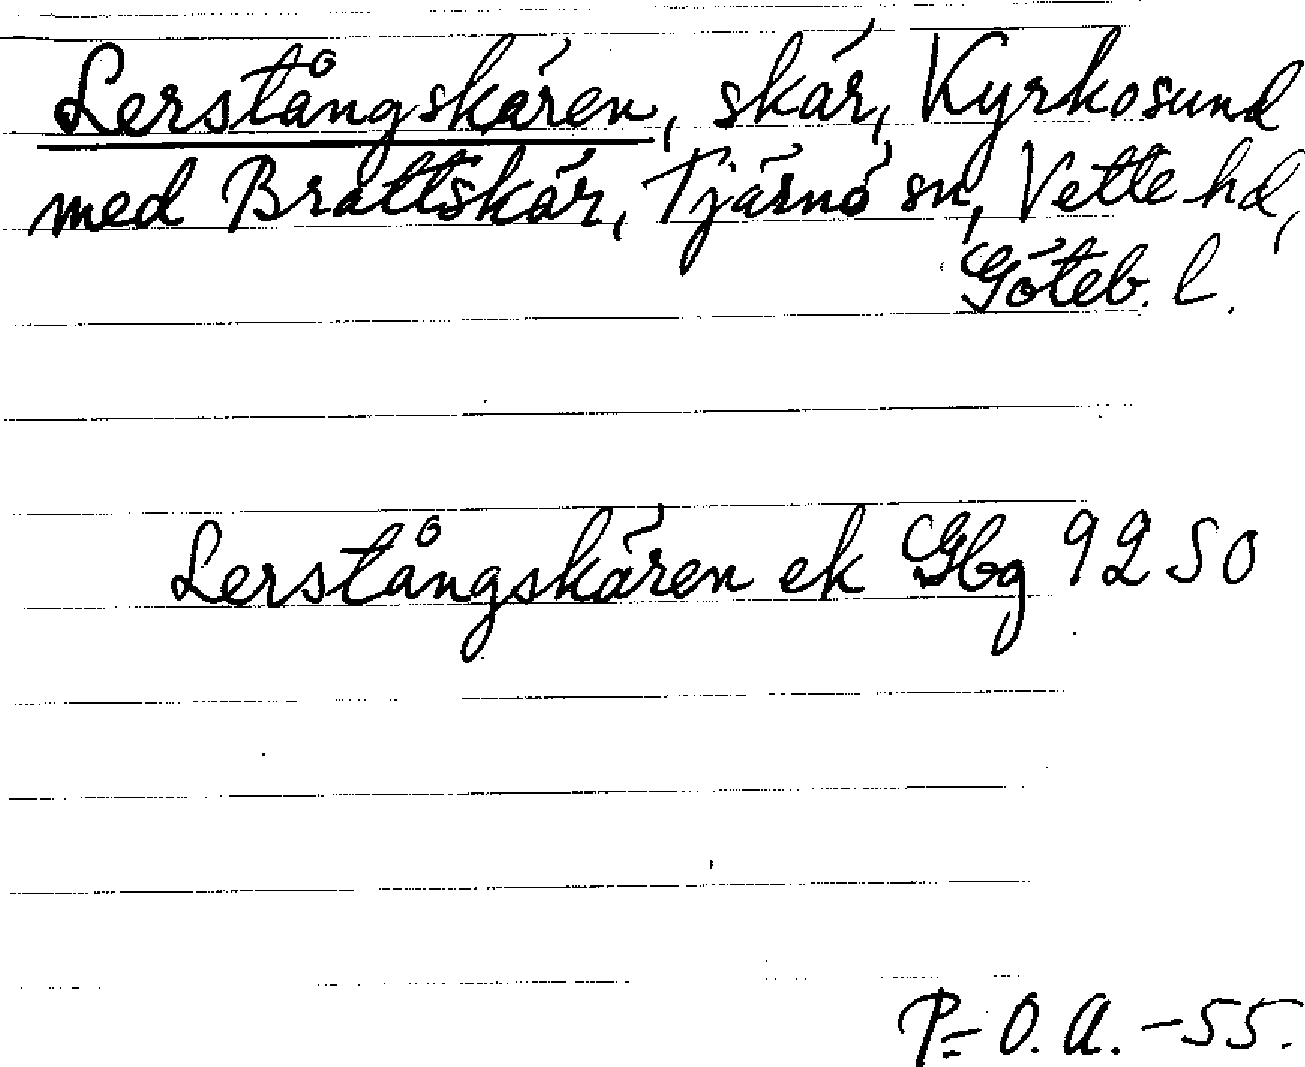 Lerstångskären, skär, Kyrkosund
med Brattskär, Tjärnö sn, Vette hd,
Göteb. l.
Lerstångskären ek Gbg 9250
P= O. A. -55.